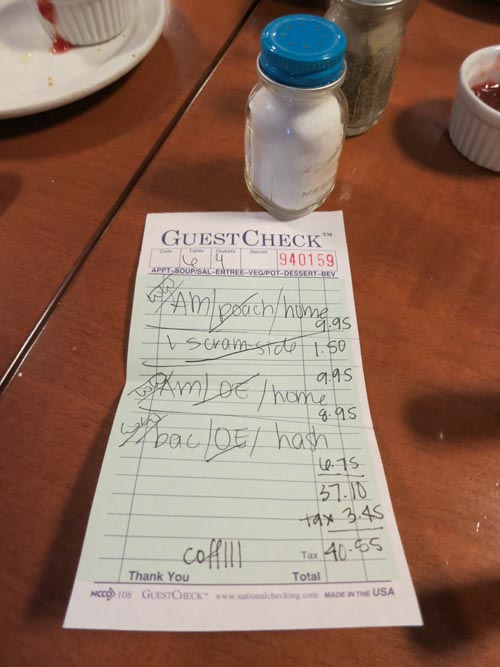 GUESTCHECK™
Date Table Guests Server
6 4 940159
APPT-SOUP/SAL-ENTREE-VEG/POT-DESSERT-BEV
AM/poach/home
9.95
1 scram side 1.50
9.95
Am/OE/home
8.95
bac/OE/hash
6.75
37.10
tax 3.45
coffIII Tax 40.55
Thank You Total
NCCO 108 GUESTCHECK™ www.nationalchecking.com MADE IN THE USA